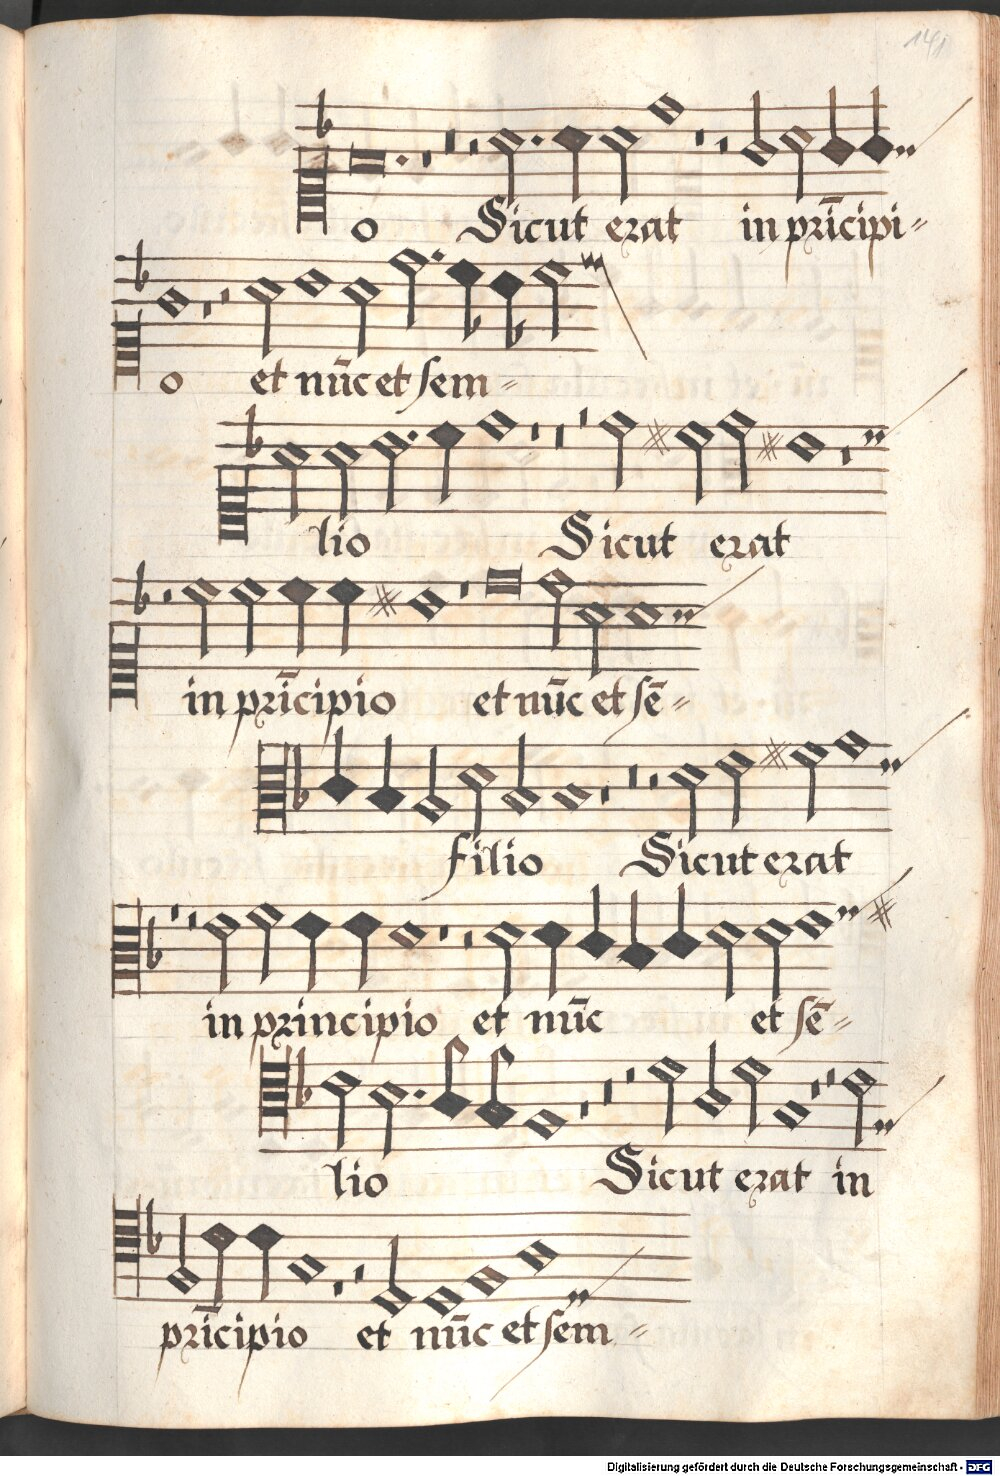 141
o Sicut erat in prīcipi=
o et nūc et sem=
lio Sicut erat
in prīcipio et nūc et sē=
filio Sicut erat
in principio et nūc et sē=
lio Sicut erat in
prīcipio et nūc et sem=
Digitalisierung gefördert durch die Deutsche Forschungsgemeinschaft - DFG